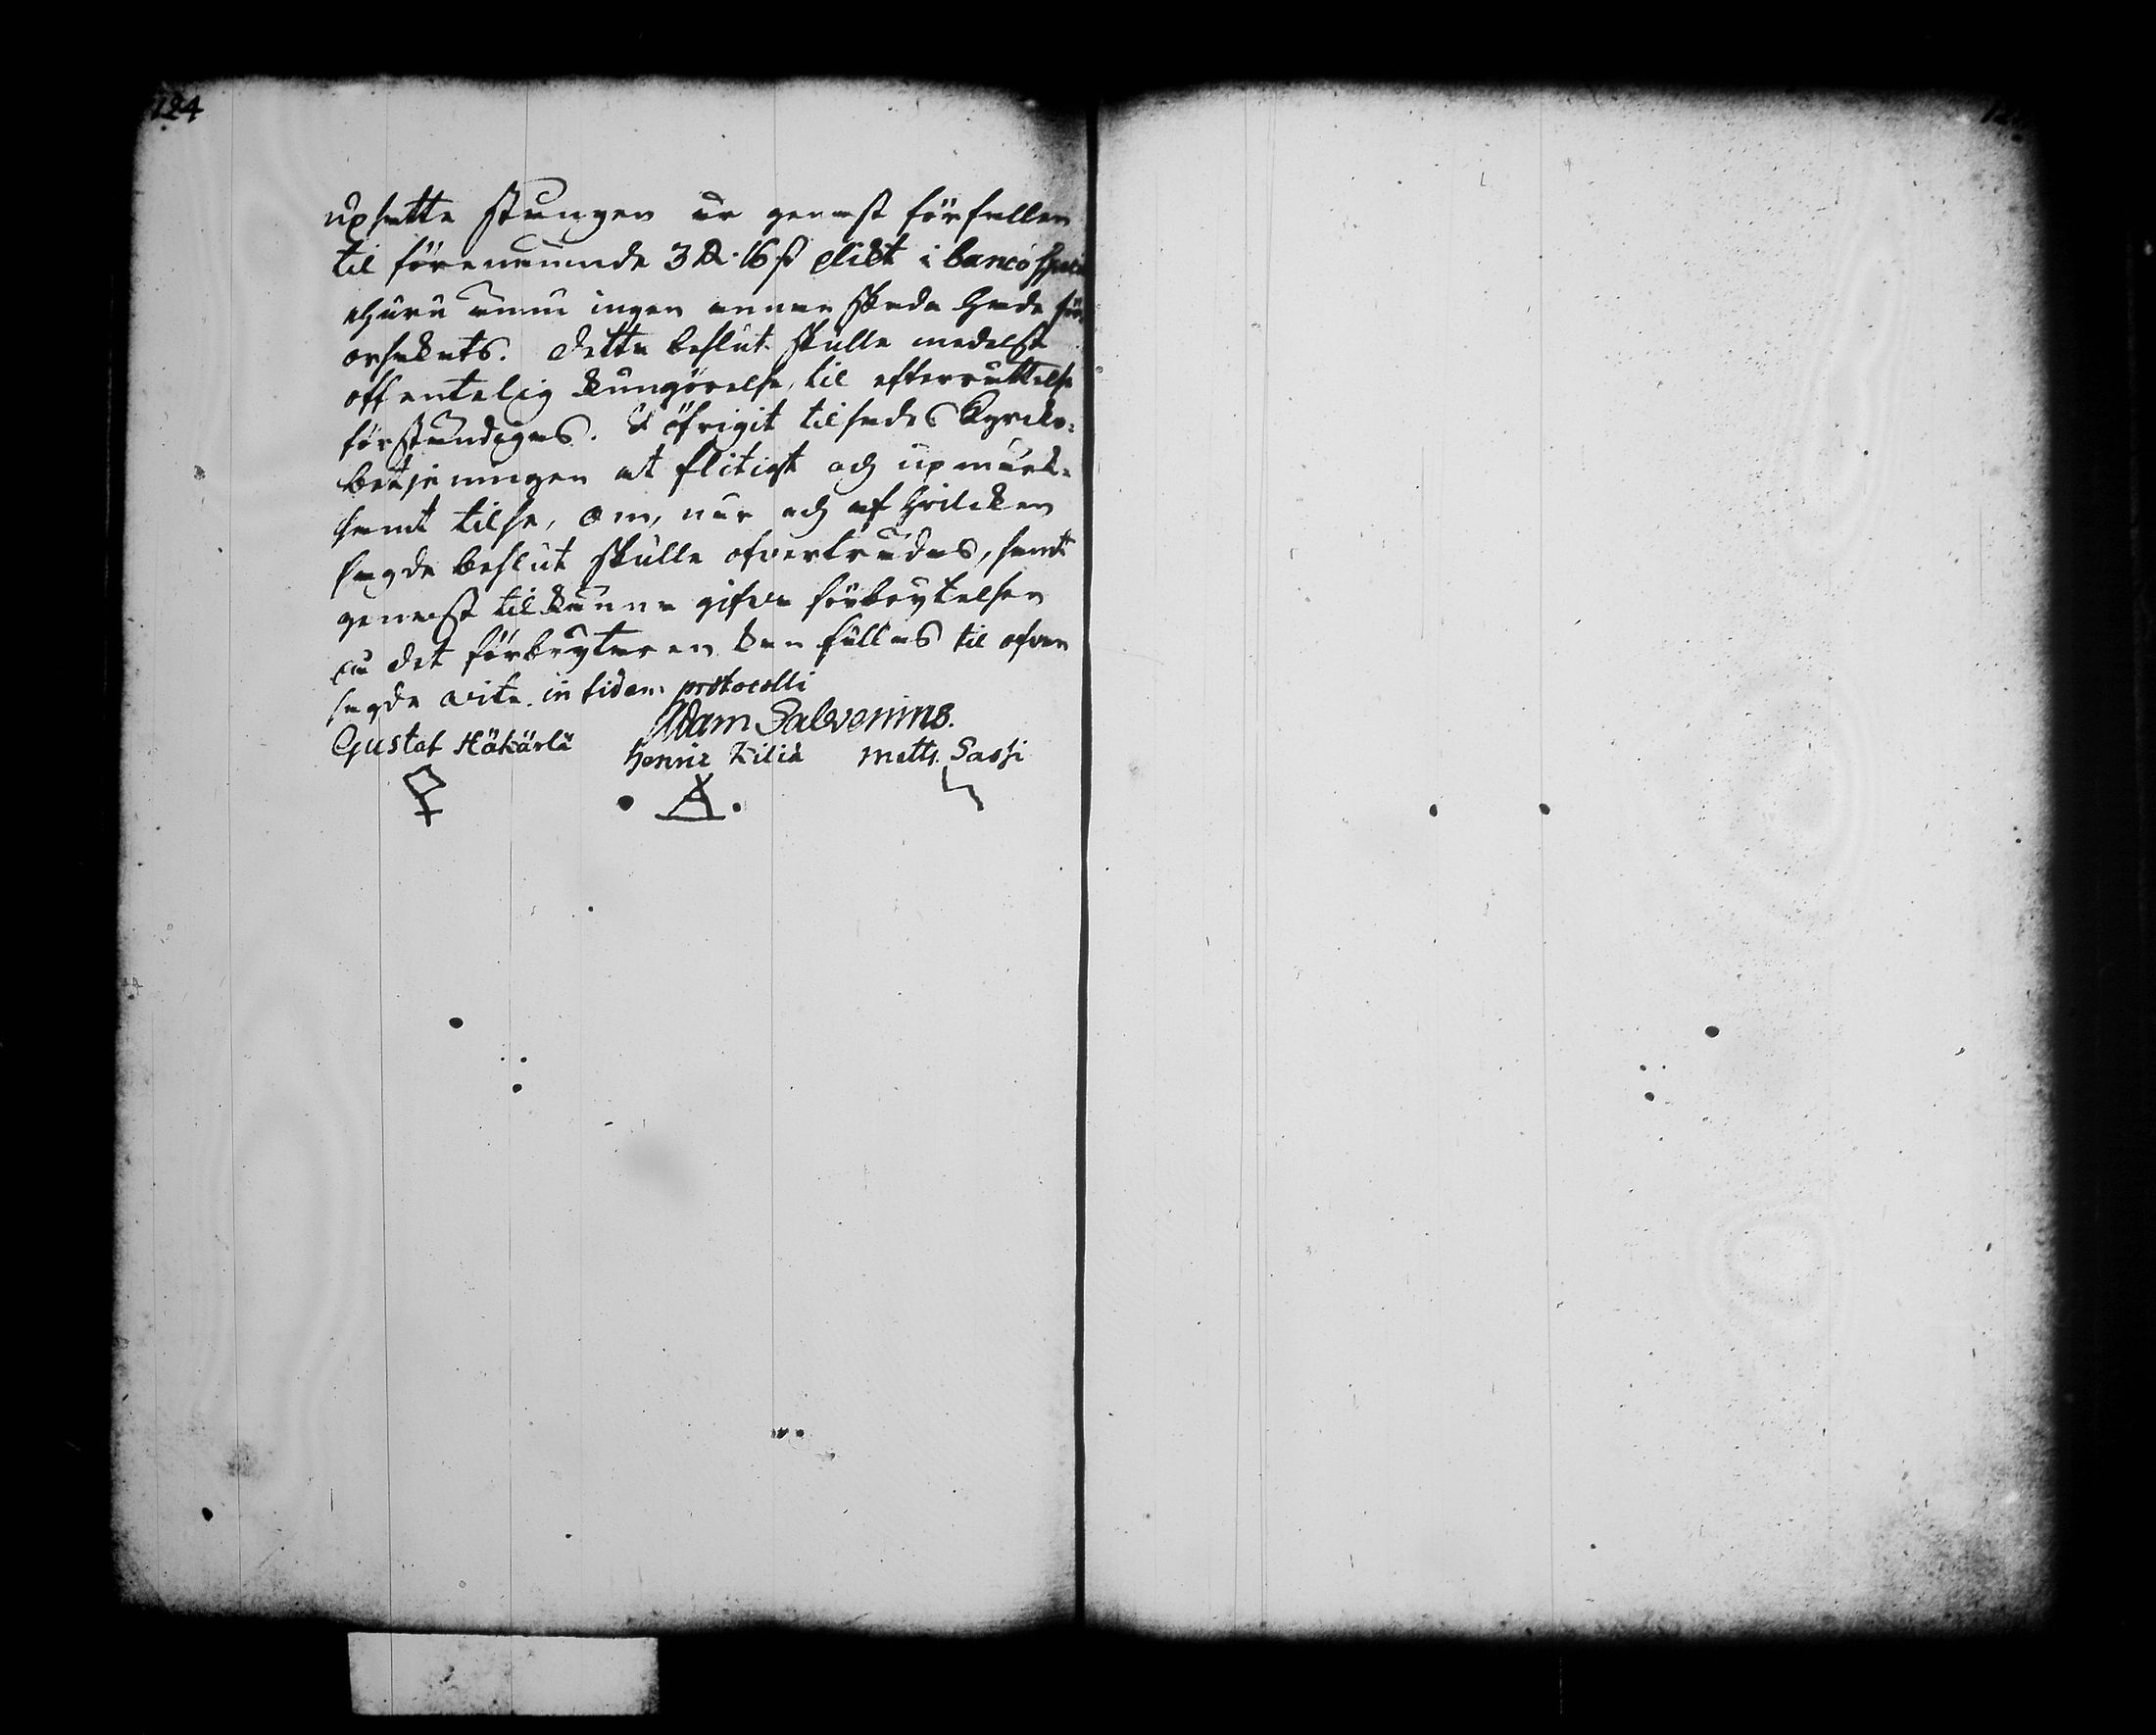 124
upsatte stangen är genast förfallen
til förenämnde 3 R. 16 ß plikt i banco
ehuru ännu ingen annan skada hade för-
orsakats. Detta beslut skulle medelst
offentelig kungörelse, til efterrättelse
förständigas. I öfrigit tilsades Kyrko-
betjeningen at flitigt och upmärk-
samt tilse, om, när och af hvilcken
sagde beslut skulle ofverträdas, samt
genast tilkänna gifva förbrytelsen
på det förbrytaren kan fällas til ofvan
sagde vite. in fidem protocolli
Adam Salvenius.
Gustaf Häkärlä Henric Kiliä Matts. Sassi